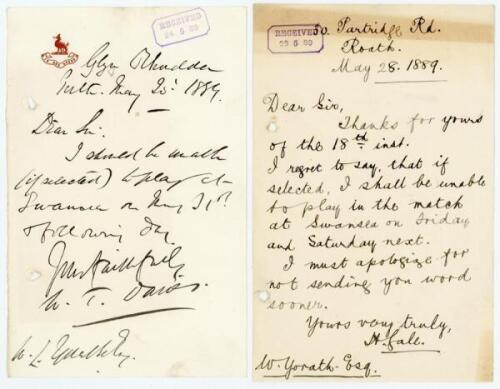 RECEIVED
Neath. May 23rd 1889.
Dear Sir:
I should be unable
(if selected) to play at
Swansea on May 31st
& following day
Yours faithfully
W. T. Davies.
RECEIVED
50, Partridge Rd.
Roath.
May 28. 1889.
Dear Sir,
Thanks for yours
of the 18th inst.
I regret to say, that if
selected, I shall be unable
to play in the match
at Swansea on Friday
and Saturday next.
I must apologize for
not sending you word
sooner.
Yours very truly,
H. Gale.
W. Yorath. Esq.